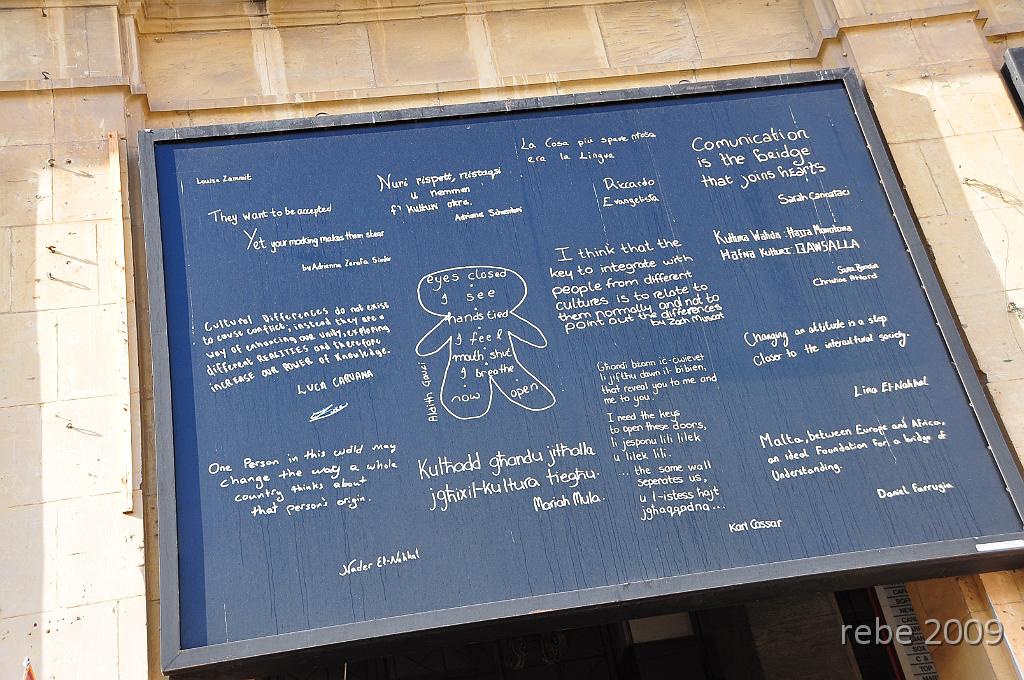 Louisa Zammit
They want to be accepted
Yet your mocking makes them
by Adrienne Zarafa
Nuri rispett, nistaqsi
u nemmen
f' kulturi oħra.
Adriana
La Cosa più spaventosa
era la Lingua
Riccardo
Evangelista
Comunication
is the Bridge
that joins hearts
Sarah Cannataci
Kultura Waħda: Ħajja Monotona
Ħafna Kulturi: BAWSALLA
Christine Attard
Cultural Differences do not exist
to cause conflict; instead they are a
way of enhancing our unity, exploring
different REALITIES and therefore
increase our POWER of Knowledge.
LUCA CARUANA
eyes closed
I see
hands tied
I feel
mouth shut
I breathe
now open
Aldith Gauci
I think that the
key to integrate with
people from different
cultures is to relate to
them normally and not to
point out the differences
by Zach Muscat
Changing an attitude is a step
closer to the intercultural society.
Lina El-Nahhal
Għandi bżonn iċ-ċwievet
li jiftħu dawn il-bibien,
that reveal you to me and
me to you.
I need the keys
to open these doors,
li jesponu lili lilek
u lilek lili.
... the same wall
seperates us,
u l-istess ħajt
jgħaqqadna...
Karl Cassar
One Person in this world may
change the way a whole
country thinks about
that person's origin.
Nader El-Nahhal
Kulħadd għandu jitħalla
jgħix il-kultura tiegħu.
Mariah Mula.
Malta, between Europe and Africa,
an ideal Foundation for a bridge of
Understanding.
Daniel Farrugia
rebe 2009